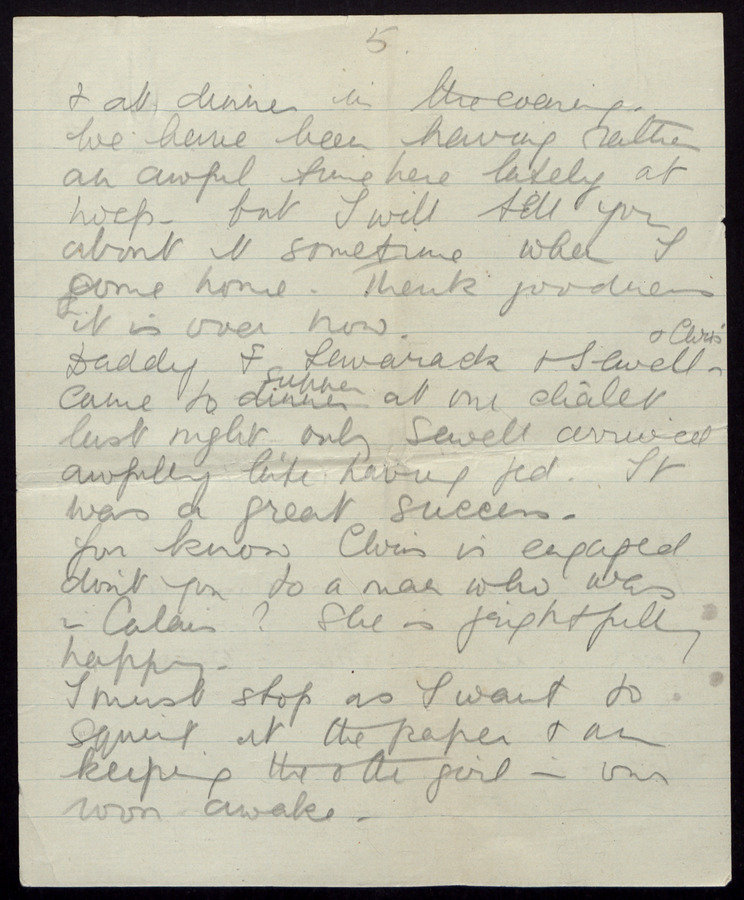 5.
& at dinner in the evening.
We have been having rather
an awful time here lately at
hosp - but I will tell you
about it sometime when I
come home. Thank goodness
it is over now.
Daddy & & Sewell & Chris
came to dinner supper at our châlet
last night only Sewell arrived
awfully late having fed. It
was a great success.
You know Chris is engaged
don't you to a man who was
in Calais? She is frightfully
happy.
I must stop as I want to
squint at the paper & am
keeping the other girl in our
room awake.